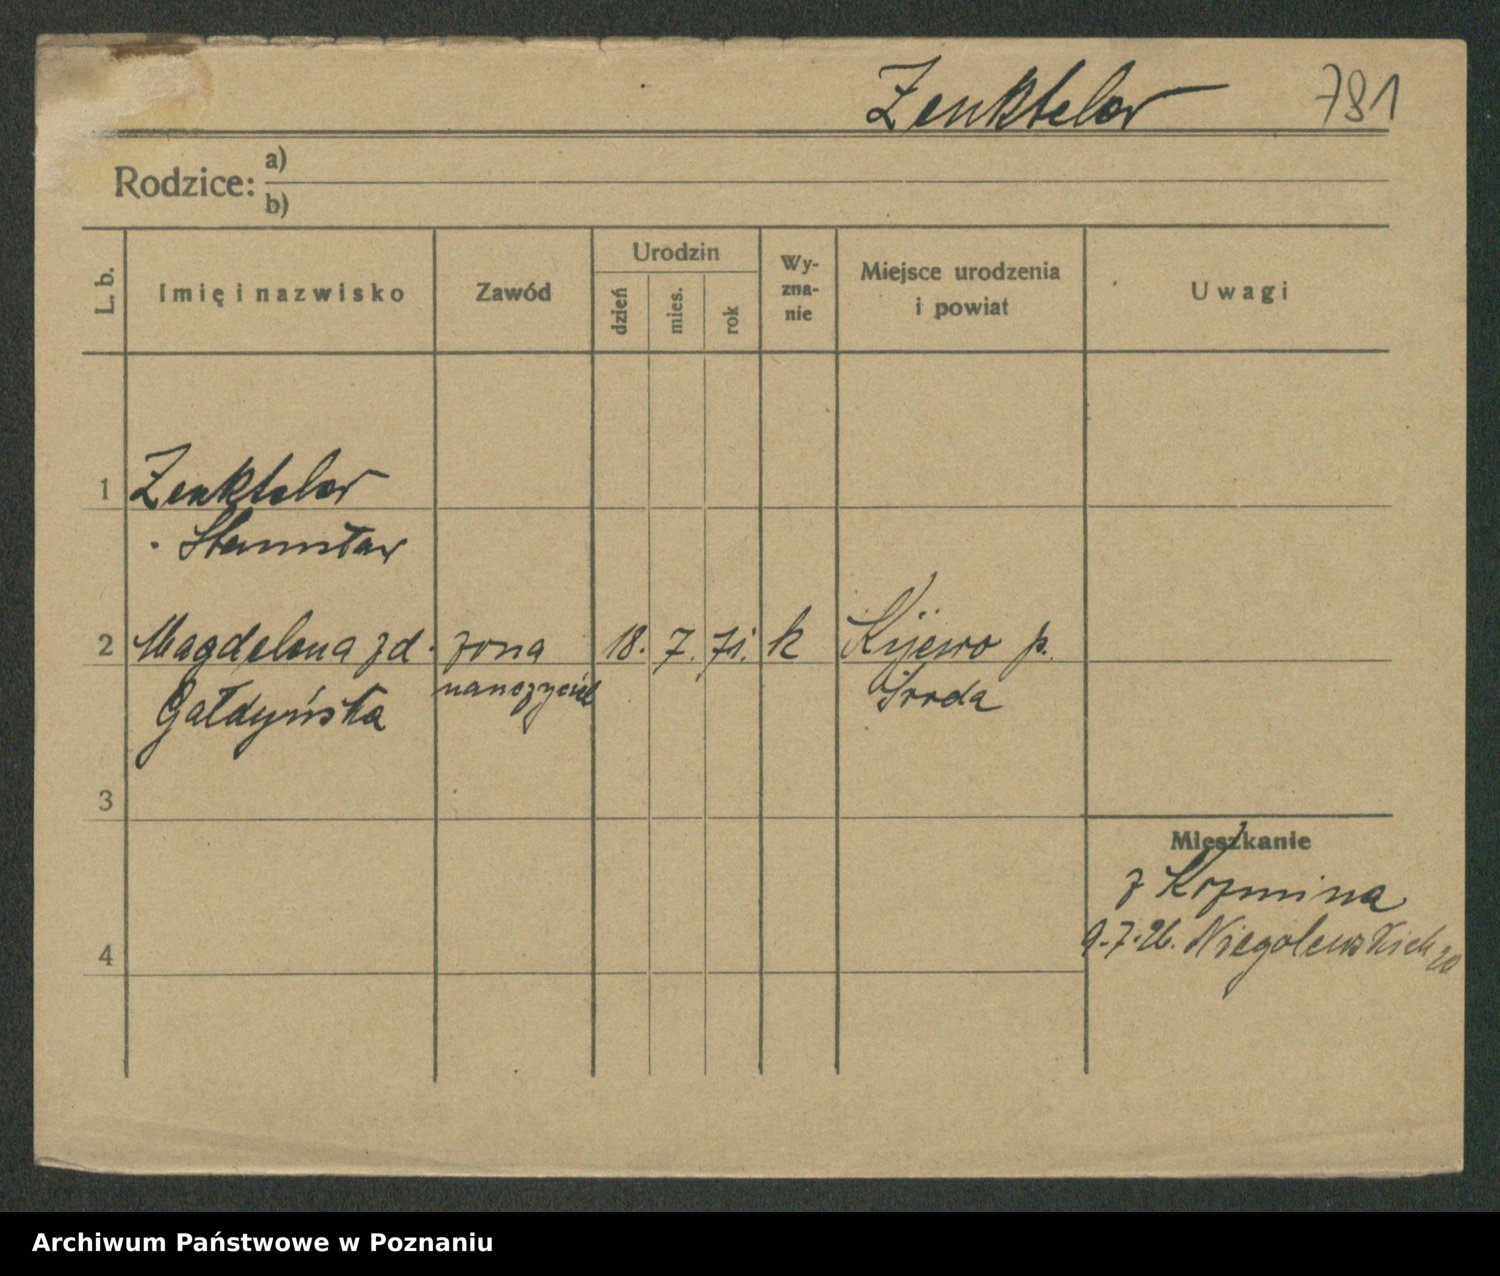 Zenkteler 781
Rodzice: a)
b)
L. b. Imię i nazwisko Zawód Urodzin dzień mies. rok Wy-zna-nie Miejsce urodzenia i powiat Uwagi
1 Zenkteler
Stanisław
2 Magdelena zd. zona 18. 7. 71. k Kijewo p.
Gałdyńska nauczyciel Sroda
3
Mieszkanie
z Kozmina
9.7.26. Niegolewskich 20
4
Archiwum Państwowe w Poznaniu